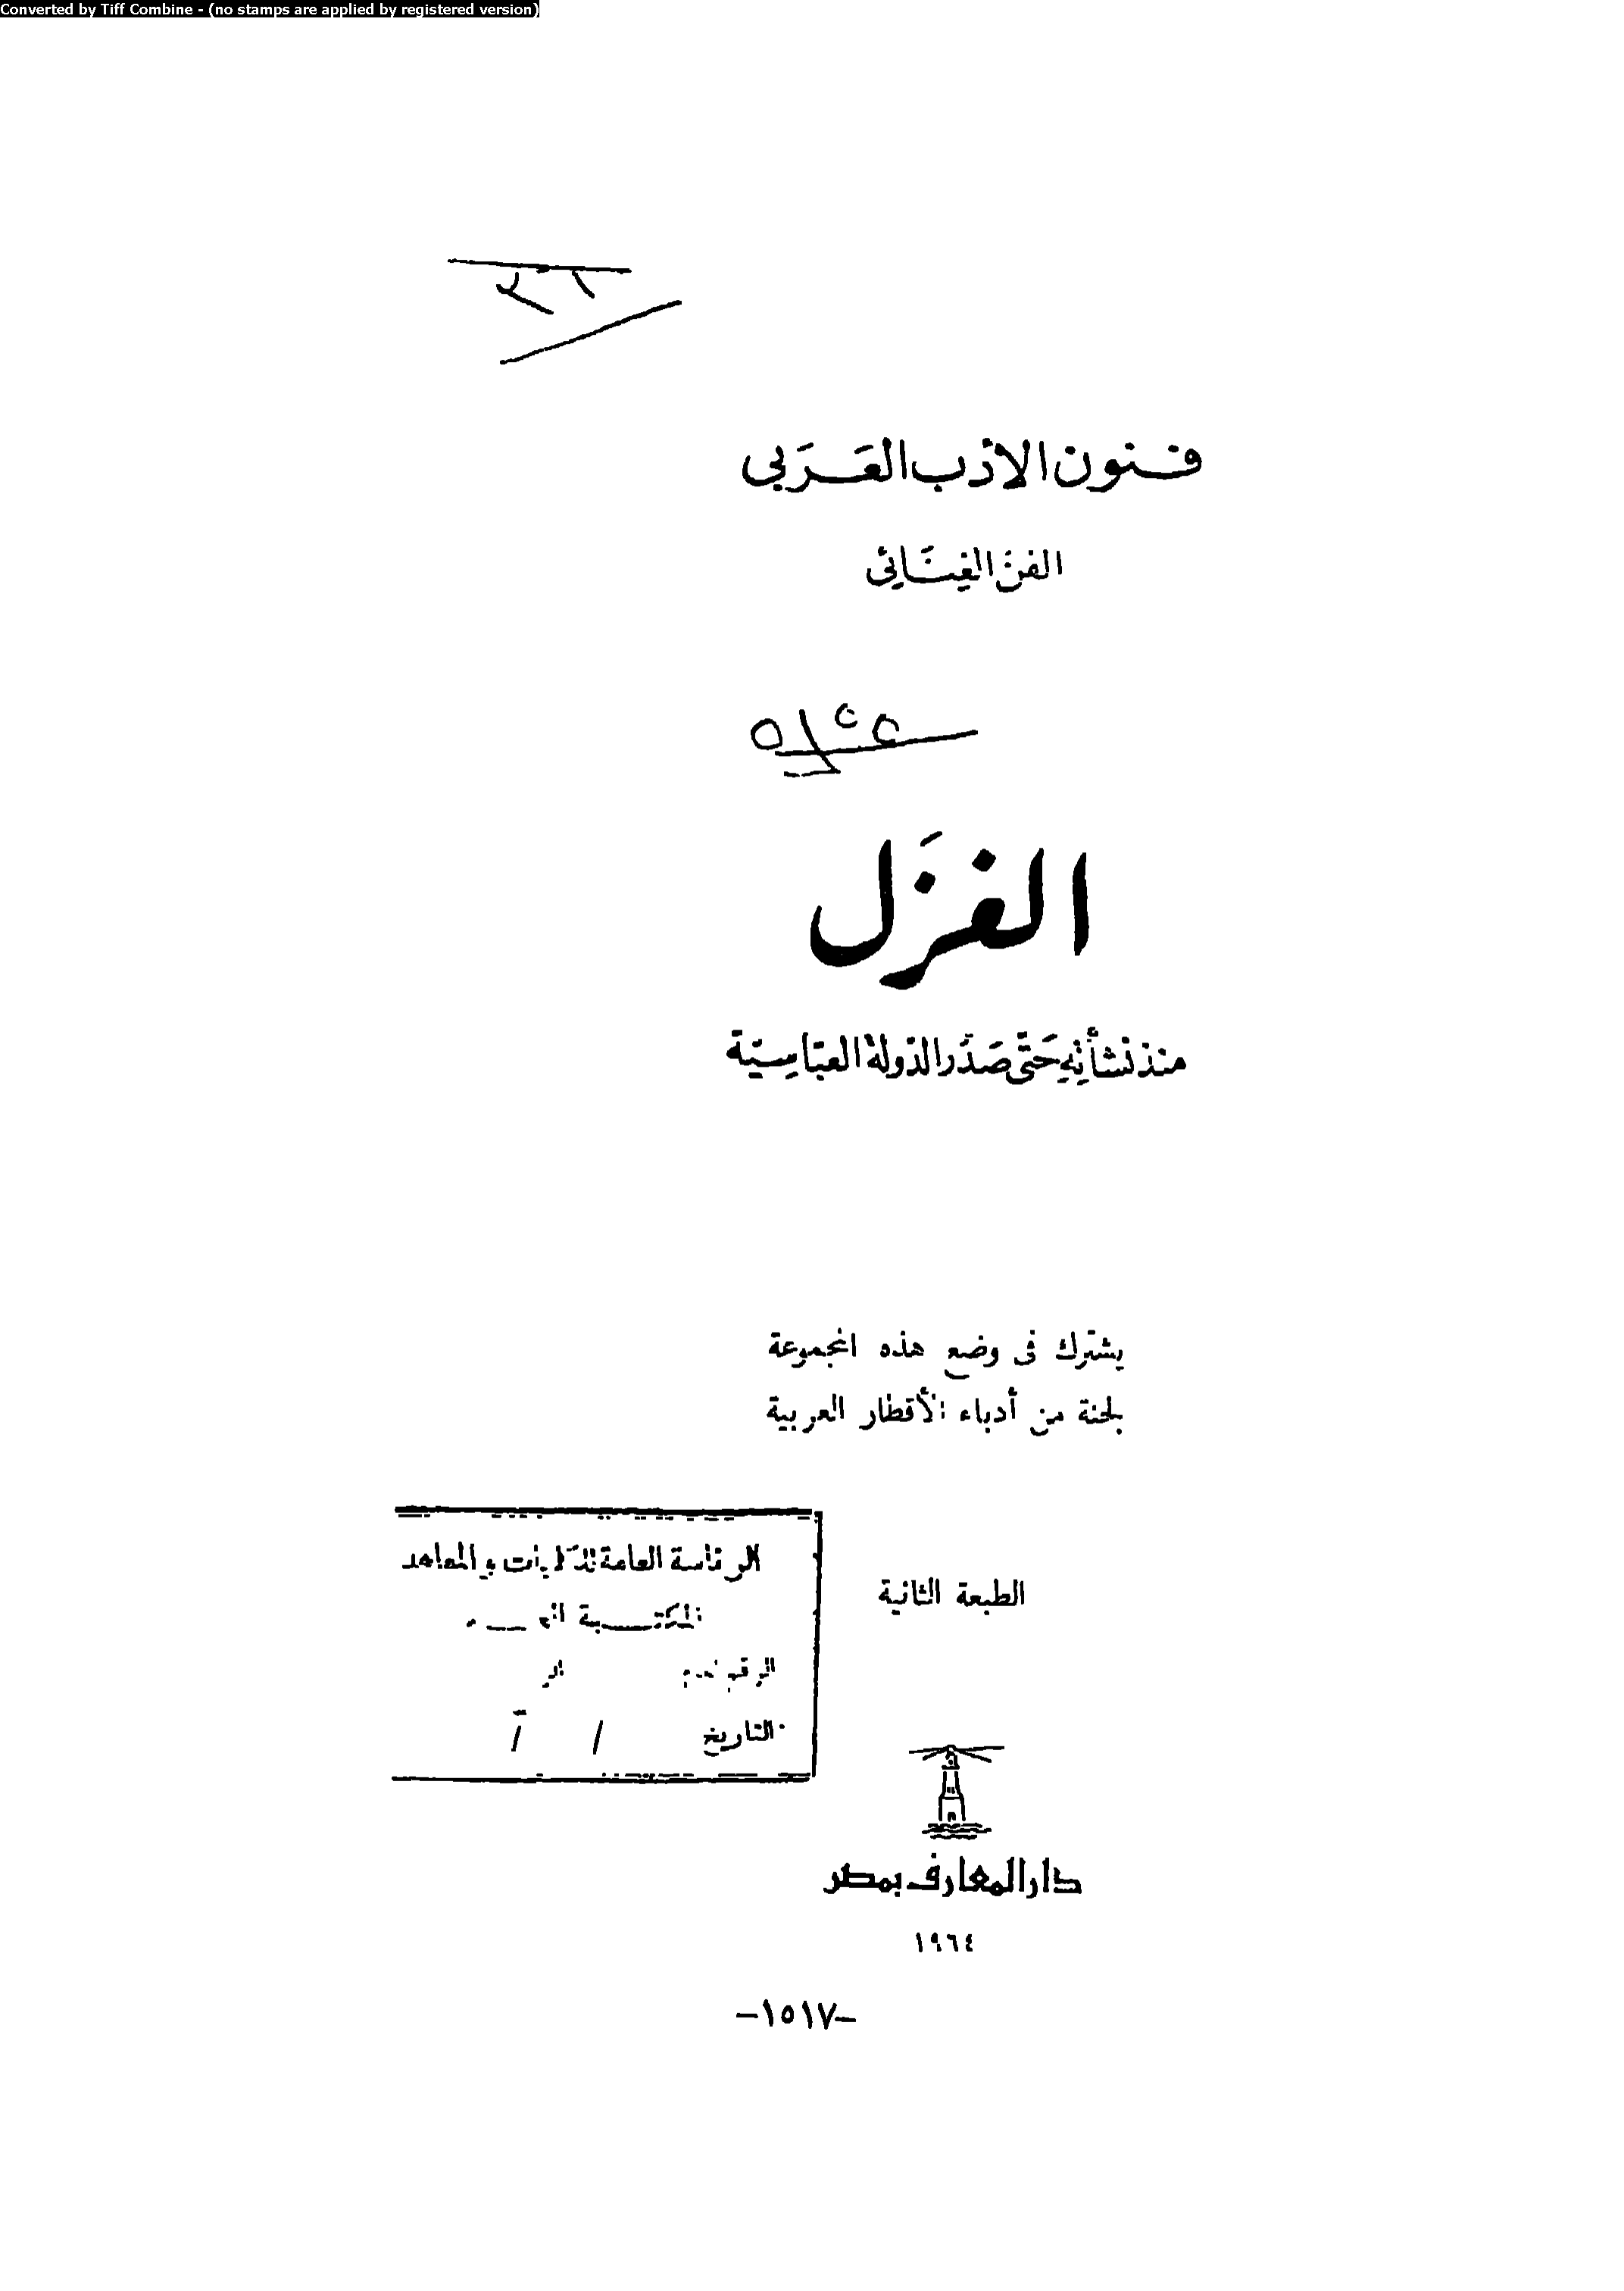 Converted by Tiff Combine - (no stamps are applied by registered version)
فنون الأدب العَرَبي
الفنّ الغِنَائي
الغزَل
منذ نشأتِهِ حَتّى صَدر الدّولة العبّاسِيّة
يشترك فى وضع هذه المجموعة
لجنة من أدباء الأقطار العربية
الرئاسة العامة للكليات والمعاهد
المكتبة
الرقم
التاريخ / /
الطبعة الثانية
دار المعارف بمصر
١٩٦٤
–١٥١٧–